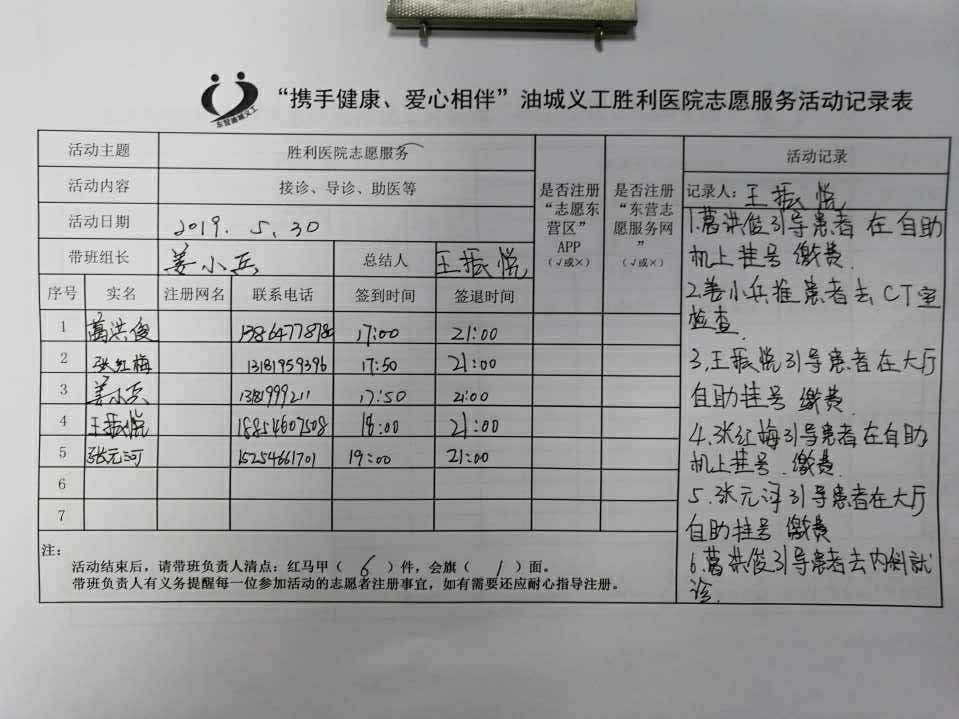 东营油城义工
“携手健康、爱心相伴”油城义工胜利医院志愿服务活动记录表
活动主题 胜利医院志愿服务
活动内容 接诊、导诊、助医等
活动日期 2019.5.30
带班组长 姜小兵 总结人 王振悦
是否注册“志愿东营区”APP（√或×）
是否注册“东营志愿服务网”（√或×）
序号 实名 注册网名 联系电话 签到时间 签退时间
1 葛洪俊 17:00 21:00
2 张红梅 13181959396 17:50 21:00
3 姜小兵 1381999211 17:50 21:00
4 王振悦 18854607508 18:00 21:00
5 张元河 15254661701 19:00 21:00
6
7
注：
活动结束后，请带班负责人清点：红马甲（ 6 ）件，会旗（ 1 ）面。
带班负责人有义务提醒每一位参加活动的志愿者注册事宜，如有需要还应耐心指导注册。
活动记录
记录人：王振悦
1.葛洪俊引导患者在自助
机上挂号 缴费.
2.姜小兵推患者去CT室
检查.
3.王振悦引导患者在大厅
自助挂号 缴费.
4.张红梅引导患者在自助
机上挂号.缴费.
5.张元河引导患者在大厅
自助挂号 缴费
6.葛洪俊引导患者去内科就
诊.